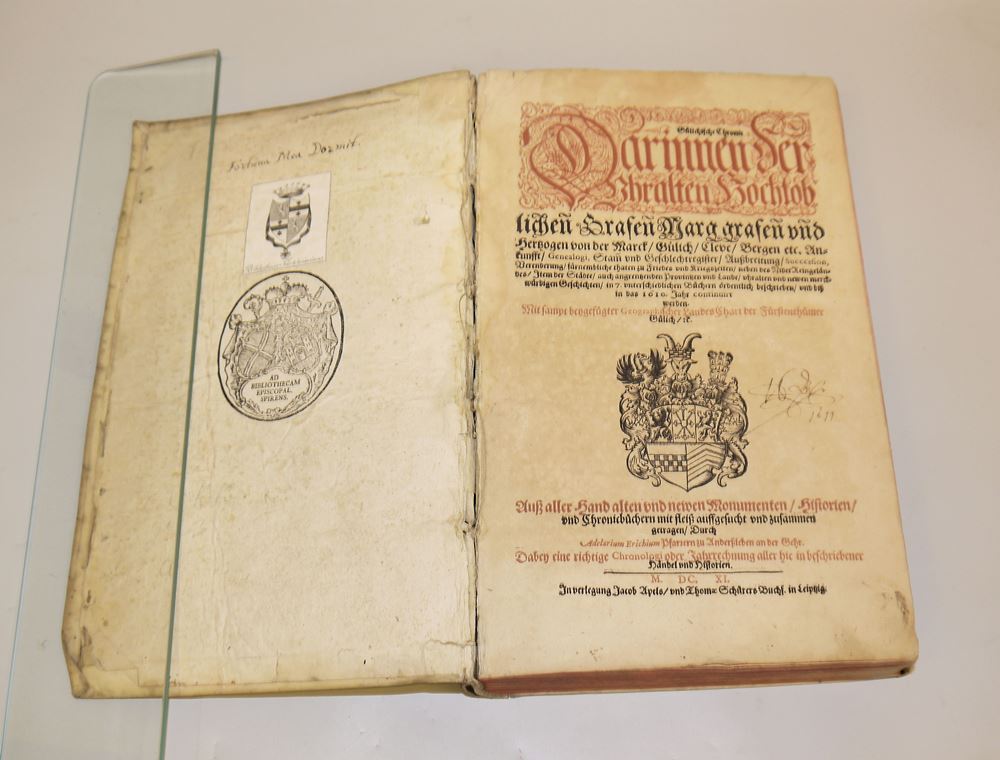 Fortuna Mea Dormit.
AD
BIBLIOTHECAM
EPISCOPAL.
SPIRENS.
Gülichische Chronic
Darinnen der
Vhralten Hochlob
lichen̄ Grafen̄ Marggrafen̄ vn̄d
Hertzogen von der Marck / Gülich / Cleve / Bergen etc. An-
kunfft / Genealogi, Stam̄ und Geschlechtregister / Außbreitung / Succession,
Veren̄derung / fürnembliche thaten zu Friedes und Kriegszeiten / neben des
des / Item der Städte / auch angrentzenden Provintzen und Lande / vhralten und newen merck-
würdigen Geschichten / in 7. vnterschiedlichen Büchern ordentlich beschrieben / vnd biß
in das 1610. Jahr continuirt
werden.
Mit sampt beygefügter Geographischer Landes Chart der Fürstenthümer
Gülich / ꝛc.
1611
Auß aller Hand alten vnd newen Monumenten / Historien /
vnd Chronicbüchern mit fleiß auffgesucht vnd zusammen
getragen / Durch
Adelarium Erichium Pfarrern zu Andersleben an der Gehr.
Dabey eine richtige Chronologi oder Jahrrechnung aller hie in beschriebener
Händel vnd Historien.
M. DC. XI.
In verlegung Jacob Apels / vnd Thomæ Schürers Buchh. in Leipzig.